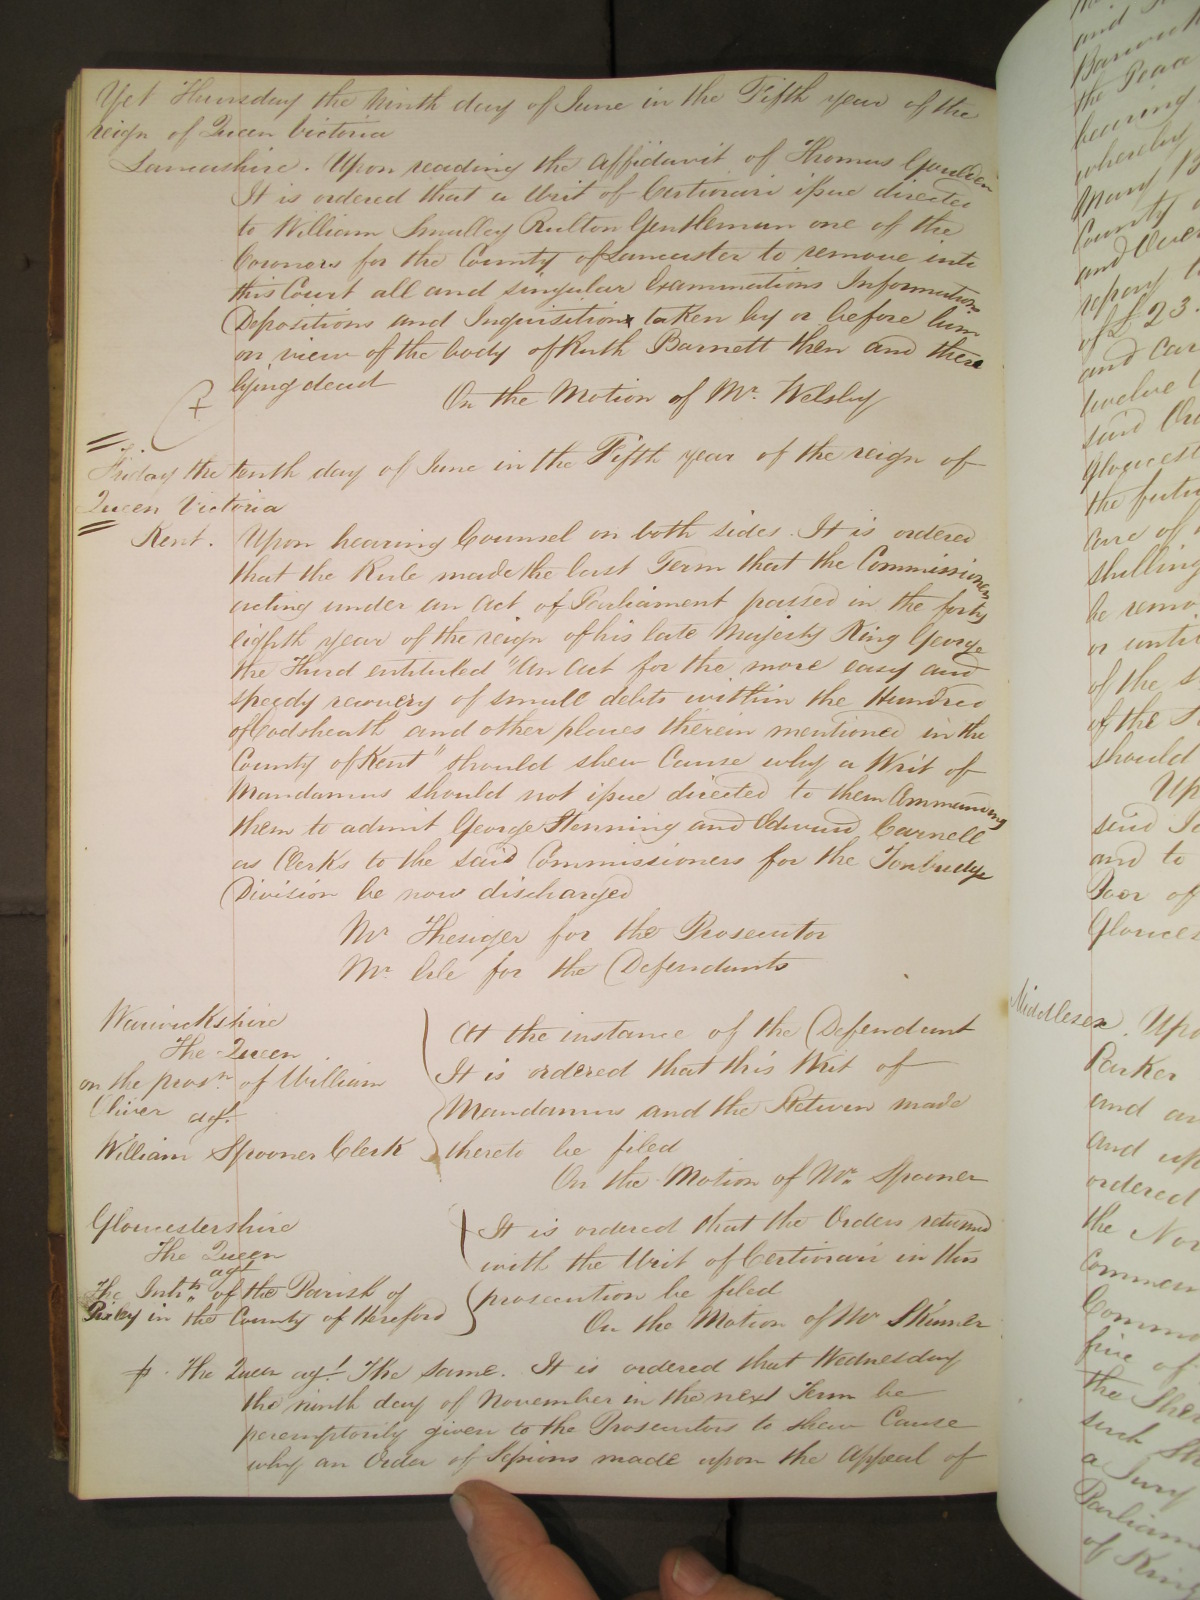 Yet Thursday the Ninth day of June in the Fifth year of the
reign of Queen Victoria
Lancashire. Upon reading the Affidavit of Thomas Goulden
It is ordered that a Writ of Certiorari issue directed
to William Smalley Rutton Gentleman one of the
Coroners for the County of Lancaster to remove into
this Court all and singular Examinations Informations
Depositions and Inquisitions taken by or before him
on view of the body of Ruth Barnett then and there
lying dead
On the Motion of Mr. Welsby
Friday the tenth day of June in the Fifth year of the reign of
Queen Victoria
Kent. Upon hearing Counsel on both sides. It is ordered
that the Rule made the last Term that the Commissioners
acting under an Act of Parliament passed in the forty
eighth year of the reign of his late Majesty King George
the Third entituled "An Act for the more easy and
speedy recovery of small debts within the Hundred
of Codsheath and other places therein mentioned in the
County of Kent" should shew Cause why a Writ of
Mandamus should not issue directed to them Commanding
them to admit George Stenning and Edward Carnell
as Clerks to the said Commissioners for the Tonbridge
Division be now discharged
Mr Thesiger for the Prosecutor
Mr. for the Defendants
Warwickshire
The Queen
on the prosn. of William
Oliver agt.
William Spooner Clerk
At the instance of the Defendant
It is ordered that this Writ of
Mandamus and the Return made
thereto be filed
On the Motion of Mr. Spooner
Gloucestershire
The Queen
agt
The Inhts. of the Parish of
Pixley in the County of Hereford
It is ordered that the Orders returned
with the Writ of Certiorari in this
prosecution be filed
On the Motion of Mr Skinner
The Queen agt. The same. It is ordered that Wednesday
the ninth day of November in the next Term be
peremptorily given to the Prosecutors to shew Cause
why an Order of Sessions made upon the Appeal of
Middlesex. Upon
Parker
and
and
ordered
the
of £23.
and
twelve
said
the
shilling
of the
of the
should
send
and to
Poor of